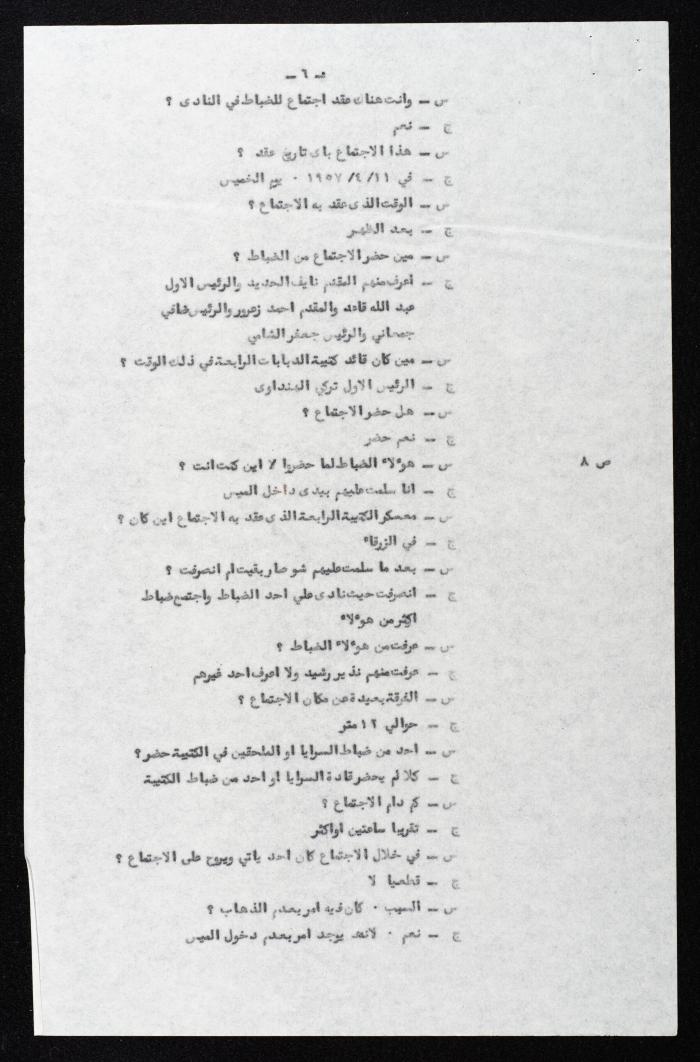 ـ ٦ ـ
س ـ وانت هناك عقد اجتماع للضباط في النادى ؟
ج ـ نعم
س ـ هذا الاجتماع باى تاريخ عقد ؟
ج ـ في ١١/ ٤/ ١٩٥٧ ٠ يوم الخميس
س ـ الوقت الذى عقد به الاجتماع ؟
ج ـ بعد الظهر
س ـ مين حضر الاجتماع من الضباط ؟
ج ـ اعرف منهم المقدم نايف الحديد والرئيس الاول
عبد الله قاعد والمقدم احمد زعرور والرئيس ضافي
جمعاني والرئيس جعفر الشامي
س ـ مين كان قائد كتيبة الدبابات الرابعة في ذلك الوقت ؟
ج ـ الرئيس الاول تركي الهنداوى
س ـ هل حضر الاجتماع ؟
ج ـ نعم حضر
س ـ هو°لا° الضباط لما حضروا لا اين كنت انت ؟
ص ٨
ج ـ انا سلمت عليهم بيدى داخل الميس
س ـ معسكر الكتيبة الرابعة الذى عقد به الاجتماع اين كان ؟
ج ـ في الزرقا°
س ـ بعد ما سلمت عليهم شو صار بقيت ام انصرفت ؟
ج ـ انصرفت حيث نادى علي احد الضباط واجتمع ضباط
اكثر من هو°لا°
س ـ عرفت من هو°لا° الضباط ؟
ج ـ عرفت منهم نذير رشيد ولا اعرف احد غيرهم
س ـ الغرفة بعيدة عن مكان الاجتماع ؟
ج ـ حوالي ١٢ متر
س ـ احد من ضباط السرايا او الملحقين في الكتيبة حضر ؟
ج ـ كلا لم يحضر قادة السرايا او احد من ضباط الكتيبة
س ـ كم دام الاجتماع ؟
ج ـ تقريبا ساعتين او اكثر
س ـ في خلال الاجتماع كان احد ياتي ويروح على الاجتماع ؟
ج ـ قطعيا لا
س ـ السبب ٠ كان فيه امر بعدم الذهاب ؟
ج ـ نعم ٠ لانه يوجد امر بعدم دخول الميس